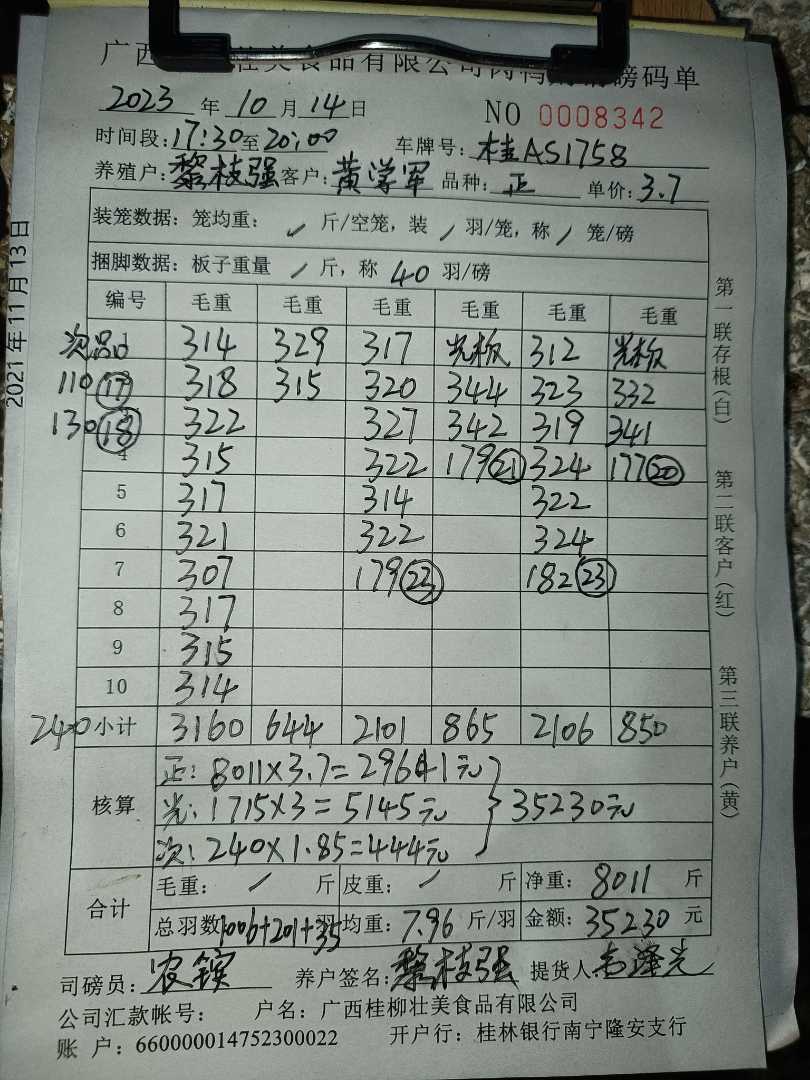 广西 壮美食品有限公司肉鸭 磅码单
2023 年 10 月 14 日 NO 0008342
时间段: 17:30 至 20:00 车牌号: 桂AS1758
养殖户: 黎枝强 客户: 黄学军 品种: 正 单价: 3.7
装笼数据: 笼均重: / 斤/空笼, 装 / 羽/笼, 称 / 笼/磅
捆脚数据: 板子重量 / 斤, 称 40 羽/磅
编号 毛重 毛重 毛重 毛重 毛重 毛重
次品 314 329 317 光板 312 光板
110 17 318 315 320 344 323 332
130 18 322 327 342 319 341
4 315 322 179 21 324 177 20
5 317 314 322
6 321 322 324
7 307 179 23 182 23
8 317
9 315
10 314
240 小计 3160 644 2101 865 2106 850
核算
正: 8011×3.7=29641元
光: 1715×3=5145元 35230元
次: 240×1.85=444元
合计
毛重: / 斤 皮重: / 斤 净重: 8011 斤
总羽数 1006+201+35 羽 均重: 7.96 斤/羽 金额: 35230 元
司磅员: 农镔 养户签名: 黎枝强 提货人:
公司汇款帐号: 户名: 广西桂柳壮美食品有限公司
账 户: 660000014752300022 开户行: 桂林银行南宁隆安支行
第一联存根(白) 第二联客户(红) 第三联养户(黄)
2021年11月13日